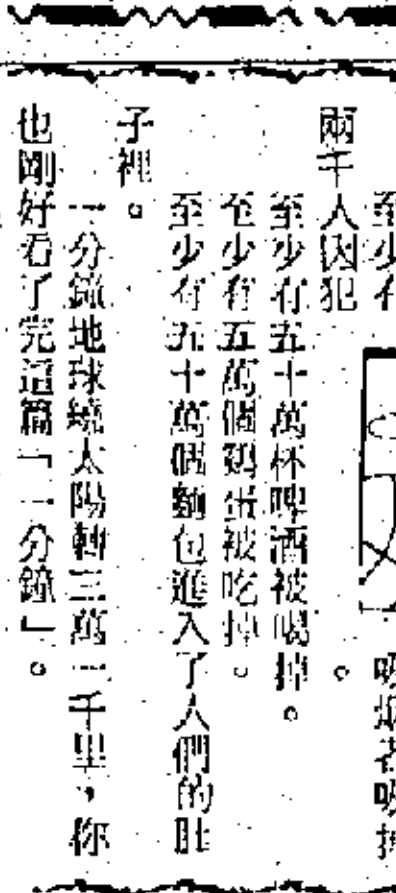 至少有
吸烟者吸掉
兩千人囚犯
。
至少有五十萬杯啤酒被喝掉。
至少有五萬個鷄蛋被吃掉。
至少有五十萬個麵包進入了人們的肚
子裡。
一分鐘地球繞太陽轉三萬一千里，你
也剛好看了完這篇「一分鐘」。